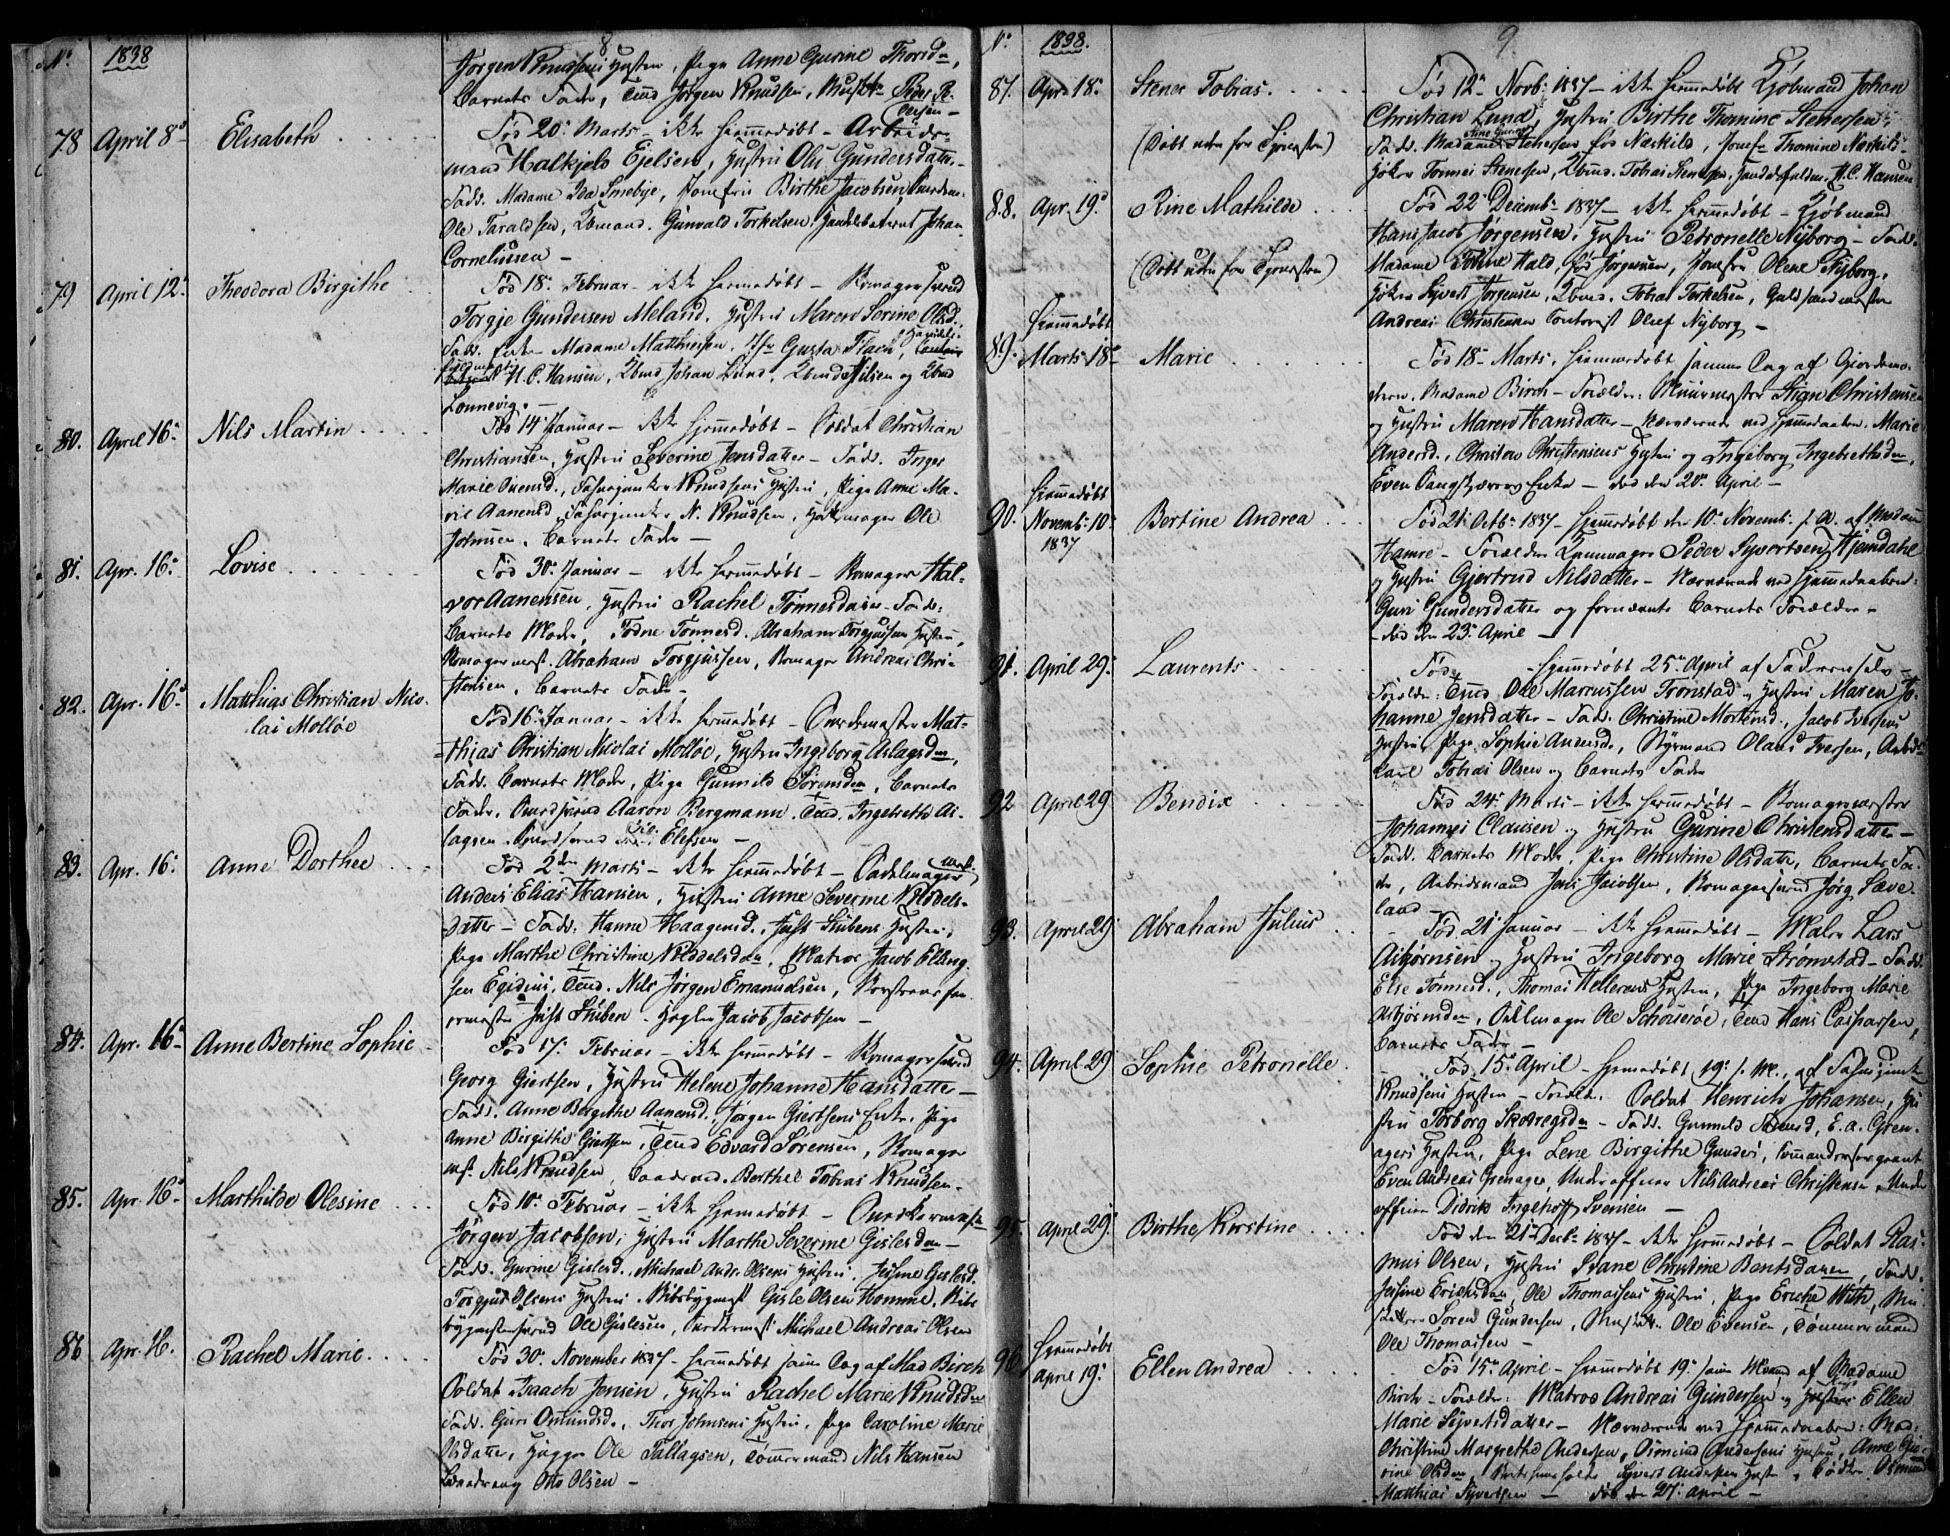 No. 1838 8
Jørgen Knudsens Hustru, Pige Anne Gurine Thorsdn,
Barnets Fader, Tmd Jørgen Knudsen, Peder P.
78 April 8de Elisabeth
Født 20de Marts – ikke hjemmedøbt – Arbeids-
mand Halkjels Ejelsen, Hustru Olu Gundersdatter.
Fadd. Madame Ida Smebye, Jomfru Birthe Jacobsen,
Ole Taraldsen, Gunvald Torkelsen, Johan
Cornelius­sen –
79 April 12te Theodora Birgithe
Fød 18de Februar – ikke hjemmedøbt – Rebmagersvend
Torgje Gundersen Meland, Hustru Maren Serine Olsd.
Fadd. Enke Madame Matthiesen, Jfr Gusta Flach,
H. C. Hansen, Johan Lund, Nilsen og
Lonnevig. –
80. April 16de Nils Martin
Fød 14 Januar – ikke hjemmedøbt – Soldat Christian
Christiansen, Hustru Severine Jensdatter – Fadd. Inger
Marie Svensd., Knudsens Hustru, Pige Anne Ma-
rie Aanensd, N. Knudsen, Ole
Johnsen, Barnets Fader –
81. Apr. 16de Lovise
Fød 30te Januar – ikke hjemmedøbt – Romager Hal-
vor Aanensen, Hustru Rachel Tønnesdatter – Fadd:
Barnets Moder, Todne Tønnesd. Abraham Torgjussens Hustru,
Romagermest. Abraham Torgjussen, Romager Andreas Chri-
stensen, Barnets Fader –
82. Apr. 16de Matthias Christian Nico-
lai Molløe
Fød 16de Januar – ikke hjemmedøbt – Mat-
thias Christian Nicolai Molløe, Hustru Ingeborg Aslagsdn,
Fadd. Barnets Moder, Pige Gunnild Sørensdn, Barnets
Fader, Aaron Bergmann, Tmd. Ingebreth As-
lagsen, Elefsen –
83. Apr. 16de Anne Dorthee
Fød 2den Marts – ikke hjemmedøbt – Sadelmager
Anders Elias Hansen, Hustru Anne Severine Niddels-
datter – Fadd: Hanne Haagensd., Just Stubens Hustru,
Pige Marthe Christine Niddelsdn, Matros Jacob Elling-
sen Egidius, Tmd. Nils Jørgen Emanuelsen,
Just Stuben. Jacob Jacobsen –
84. Apr. 16de Anne Bertine Sophie
Fød 17. Februar – ikke hjemmedøbt – Romagersvend
Georg Giertsen, Hustru Helene Johanne Hansdatter –
Fadd. Anne Bergithe Aanensd., Jørgen Giertsens Enke, Pige
Anne Birgithe Giertsen, Tmd Edvard Sørensen, Romager
mst. Nils Knudsen, Berthel Tobias Knudsen.
85. Apr. 16de Marthilde Olesine
Fød 10de Februar – ikke hjemmedøbt –
Jørgen Jacobsen, Hustru Marthe Severine Gislesdn –
Fadd. Gurine Gislesd., Michael Andr. Olsens Hustru. Gislesd.
Torgjus Olsens Hustru. Skibsbygmest Gisle Olsen Homme, Skibs-
bygmestersvend Ole Gislesen, Michael Andreas Olsen
86 Apr. 16. Rachel Marie
Fød 30. November 1837 – hjemmedøbt samme Dag af Mad Birch
Soldat Isaach Jensen, Hustru Rachel Marie Knudsdn
Fadd. Guri Omundsd., Thor Johnsens Hustru, Pige Caroline Marie
Olsdatter, Ole Tallagsen, Tømmermand Nils Hansen
Otto Olsen –
No. 1838. 9
87. Apr. 18de Stener Tobias.
(Døbt uden for Tjenesten)
Fød 12te Novb: 1837 – ikke hjemmedøbt Kjøbmand Johan
Christian Lund, Hustru Birthe Thomine Stenersen –
Fadd. Madame Stenersen fød Naskild, Jomfr Thomine Naskild
Tønnes Stenersen, Tobias Stenersen, H. C. Hansen
88. Apr. 19de Rine Mathilde
(Døbt uden for Tjenesten)
Fød 22de Decemb: 1837 – ikke hjemmedøbt – Kjøbmand
Hans Jacob Jørgensen, Hustru Petronelle Nyborg – Fadd.
Madame Hald, fød Jørgensen, Jomfru Olene Nyborg.
Syvert Jørgensen, Tobias Torkelsen, Guldsmedmester
Andreas Christensen Contorist Oluf Nyborg –
89. Hjemmedøbt
Marts 18de Marie
Fød 18de Marts, hjemmedøbt samme Dag af Gjordemo-
deren, Madame Birch – Forældre: Muurmester Stign Christensen
og Hustru Maren Hansdatter – Nærværende ved Hjemmedaaben: Marie
Andersd., Christen Christensens Hustru og Ingeborg Ingebrethsdn,
Even Enke – død den 20de April –
90. Hjemmedøbt
Novemb: 10de
1837 Bertine Andrea
Fød 21 Octb: 1837 – hjemmedøbt den 10de Novemb: s. A. af Madam
Hamre – Forældre Peder Syvertsen Hjemdahl
og Hustru Gjertrud Nilsdatter – Nærværende ved Hjemmedaaben:
Guri Gundersdatter og fornævnte Barnets Forældre –
– død den 23de April –
91. April 29de Laurents
Fød – hjemmedøbt 25de April af Faderen selv –
Forældre: Tmd. Ole Marcussen Tronstad og Hustru Maren Jo-
hanne Jensdatter – Fadd. Christine Mortensd., Jacob Iversens
Hustru, Pige Sophie Andersd., Styrmand Olaus Iversen, Arbeids-
karl Tobias Olsen og Barnets Fader
92 April 29 Bendix
Fød 24de Marts – ikke hjemmedøbt – Romagermester
Johannes Clausen og Hustru Gurine Christensdatter –
Fadd. Barnets Moder, Pige Christine Olsdatter, Barnets Fa-
der, Arbeidsmand Jens Jacobsen, Romagersvend Jørg Sæve-
land –
93. April 29 Abraham Julius
Fød 21 Januar – ikke hjemmedøbt – Maler Lars
Asbjørnsen og Hustru Ingeborg Marie Strømstad – Fadd.
Else Tønnesd., Thomas Hellersens Hustru, Pige Ingeborg Marie
Asbjørnsdn, Ole Schouerøe, Tmd Hans Caspersen,
Barnets Fader –
94. April 29 Sophie Petronelle.
Fød 15de April – hjemmedøbt 19de s. M., af
Knudsens Hustru – Foræld. Soldat Henrich Johansen, Hu-
stru Torborg Skotregsdn – Fadd. Gunnild E. A. Gren-
agers Hustru, Pige Lene Birgithe Gunders, Commandeersergeant
Even Andreas Grenager, Underofficer Nils Andreas Christensen, Under-
officer Didrik Ingelhoff Svensen –
95. April 29de Birthe Kirstine
Fød den 21de Decb: 1837 – ikke hjemmedøbt – Soldat Ras-
mus Olsen, Hustru Svane Christine Bentsdatter, Fadd.
Josine Ericksdn, Ole Thomassens Hustru, Pige Eriche With,
Søren Gundersen, Ole Evensen, Tømmermand
Ole Thomassen –
96 Hjemmedøbt
April 19de Ellen Andrea
Fød 15de April – hjemmedøbt 19de samme Maaned af Madame
Birch – Forældre: Matros Andreas Gundersen og Hustru Ellen
Marie Syvertsdatter – Nærværende ved Hjemmedaaben: Mad:
Christine Margrethe Andersen, Osmund Andersens Hustru, Anne Gu-
rine Olsdn, Syvert Andersens Hustr, Osmund
Matthias Syvertsen – død den 27de April –